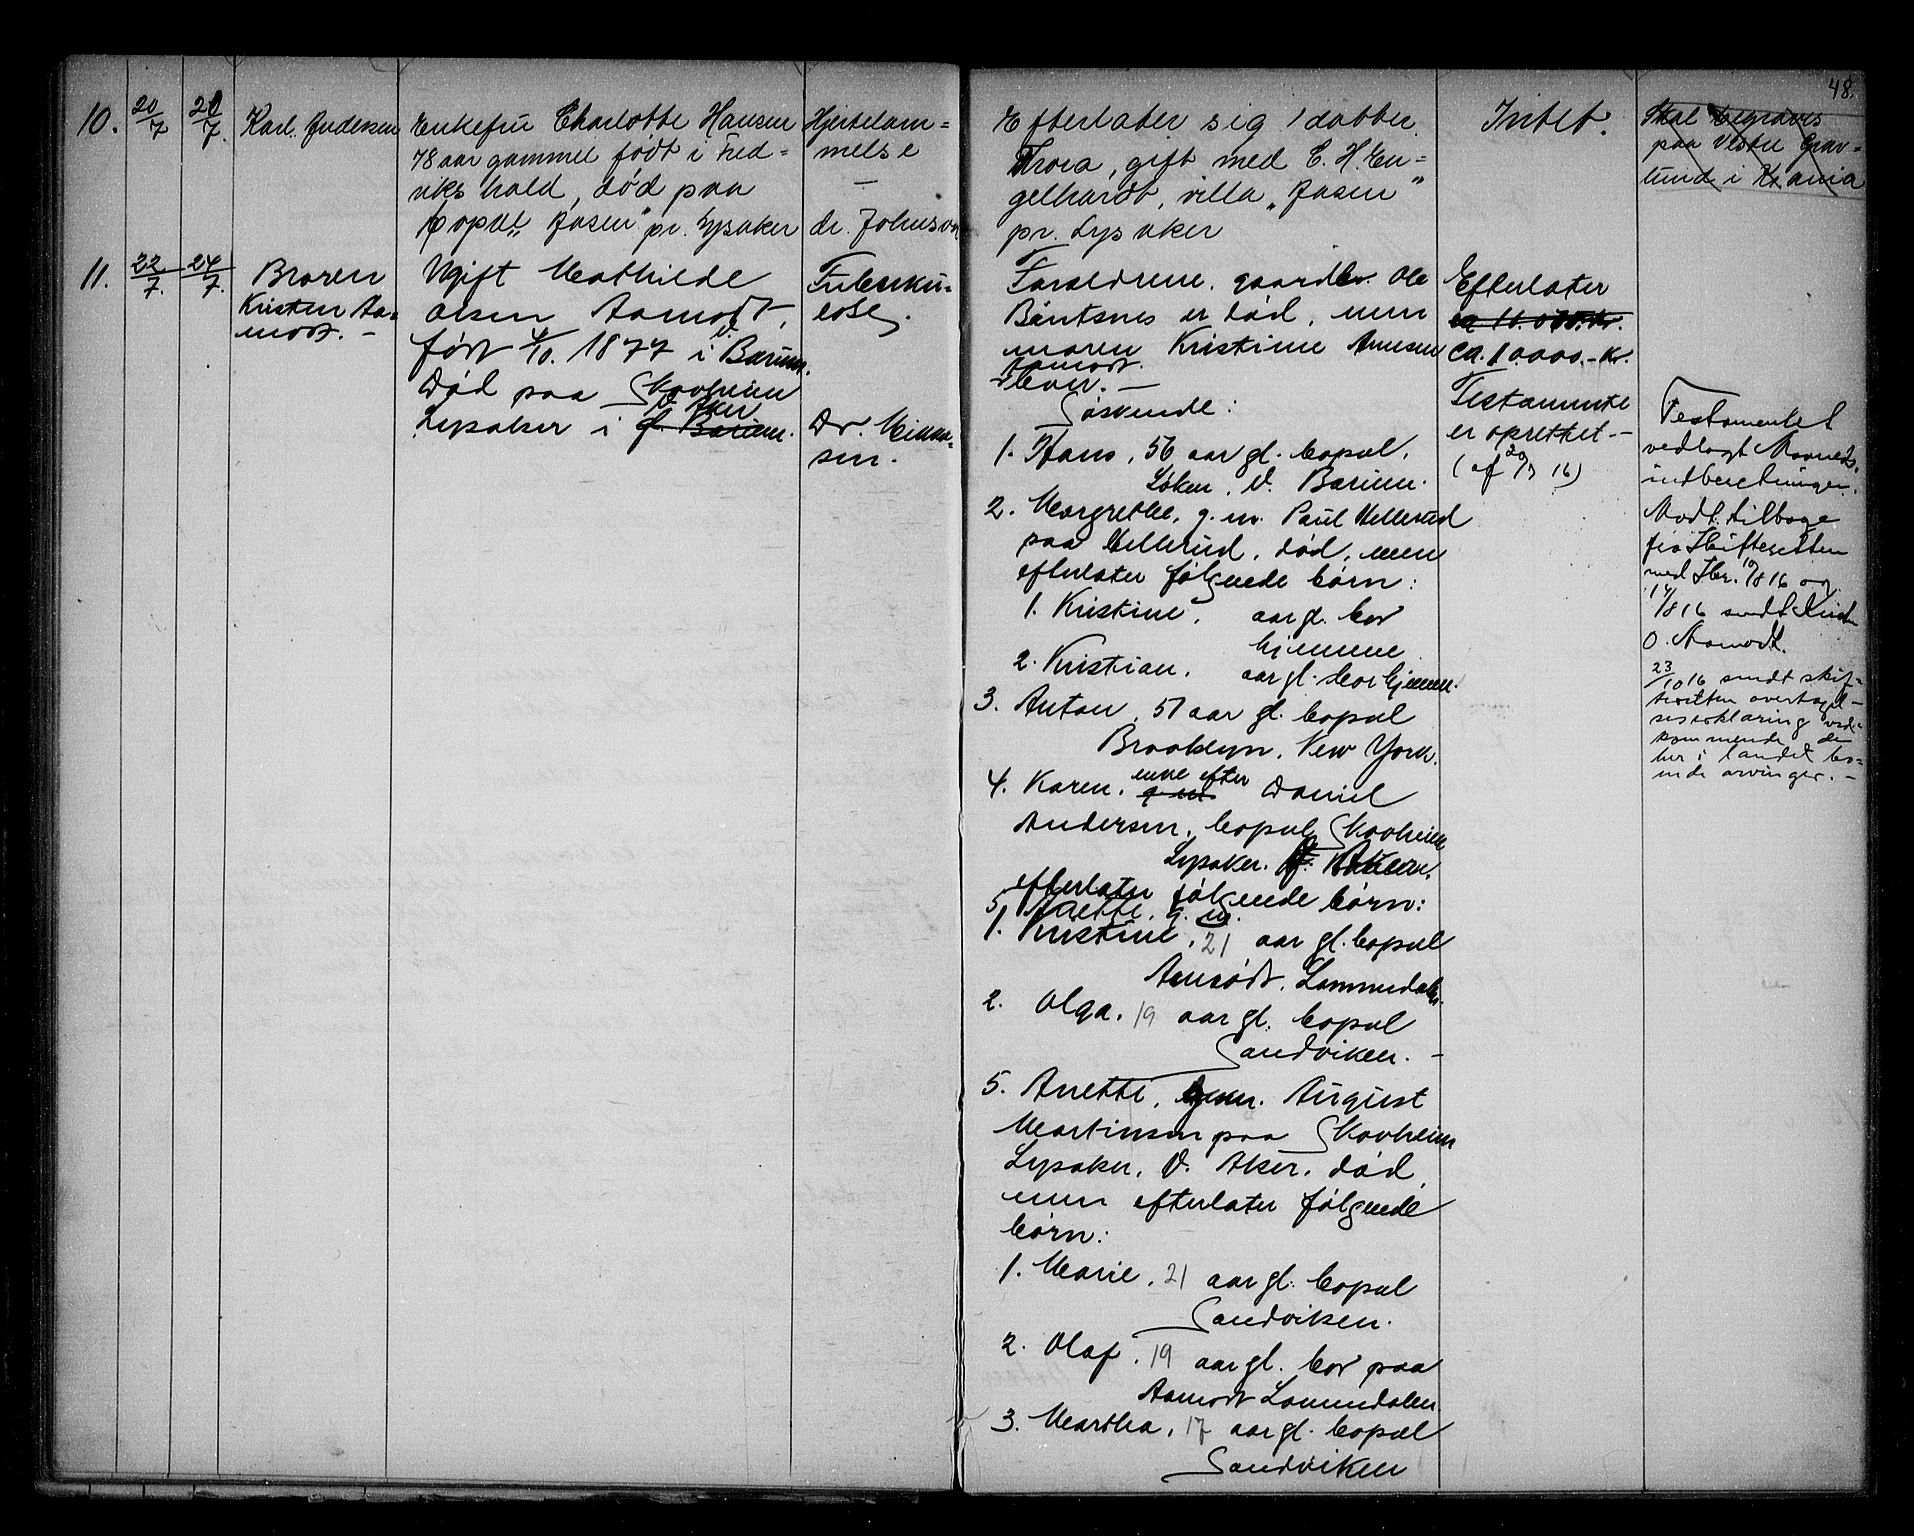 48.
10.
20/7
21/7.
Karl. Andersen
Enkefru Charlotte Hansen
78 aar gammel født i Fred=
riks hald, død paa
bopæl „Aasen" pr. Lysaker
Hjertelam=
melse
—
dr. Johnson
Efterlater sig 1 datter
Thora, gift med C. H. En=
gelhardt, villa „Aasen"
pr. Lysaker
Intet.
Skal begraves
paa Vestre Grav=
lund i Kr.ania
11.
22/7.
24/7.
Broren
Kristen Aa=
modt. –
Ugift Mathilde
Olsen Aamodt,
født 4/10. 1877 i V. Bærum.
Død paa Skovheim
V. Aker
Lysaker i Ø. Bærum.
Tuberku=
lose,
Dr. Mikael=
sen.
Forældrene. gaardbr. Ole
Bentsnes er død, men
moren Kristine Arnesen
Aamodt.
lever. –
Søskende:
1. Hans, 56 aar gl. bopæl.
Løken, V. Bærum.
2. Margrethe, g. m. Paul Hellerud
paa Hellerud, død, men
efterlater følgende børn:
1. Kristine, aar gl. bor
hjemme
2. Kristian, aar gl. bor hjemme.
3. Anton, 51 aar gl. bopæl
Brooklyn, New York.
enke efter
4. Karen, g. m. Daniel
Andersen, bopæl Skovheim
Lysaker. V. Aker.
efterlater følgende børn:
5. Anette, g. m.
1. Kristine, 21 aar gl. bopæl
Aamodt, Lommedalen.
2. Olga, 19 aar gl. bopæl
Sandviken. –
5. Anette, g. m. August
Martinsen paa Skovheim
Lysaker, V. Aker. død,
men efterlater følgende
børn:
1. Marie, 21 aar gl. bopæl
Sandviken.
2. Olaf, 19 aar gl. bor paa
Aamodt Lommedalen.
3. Martha, 17 aar gl. bopæl
Sandviken
Efterlater
ca. 10.000.- kr.
Testamente
er oprettet. –
(af 20/7 16)
Testamentet
vedlagt Maaneds.
indberetningen.
Modt. tilbage
fra Skifteretten
med Skr. 10/8 16 og
14/8 16 sendt Krist.
O. Aamodt.
23/10 16 sendt skif=
teretten overtagel=
seserklæring ved=
kommende de
her i landet bo=
ende arvinger. –